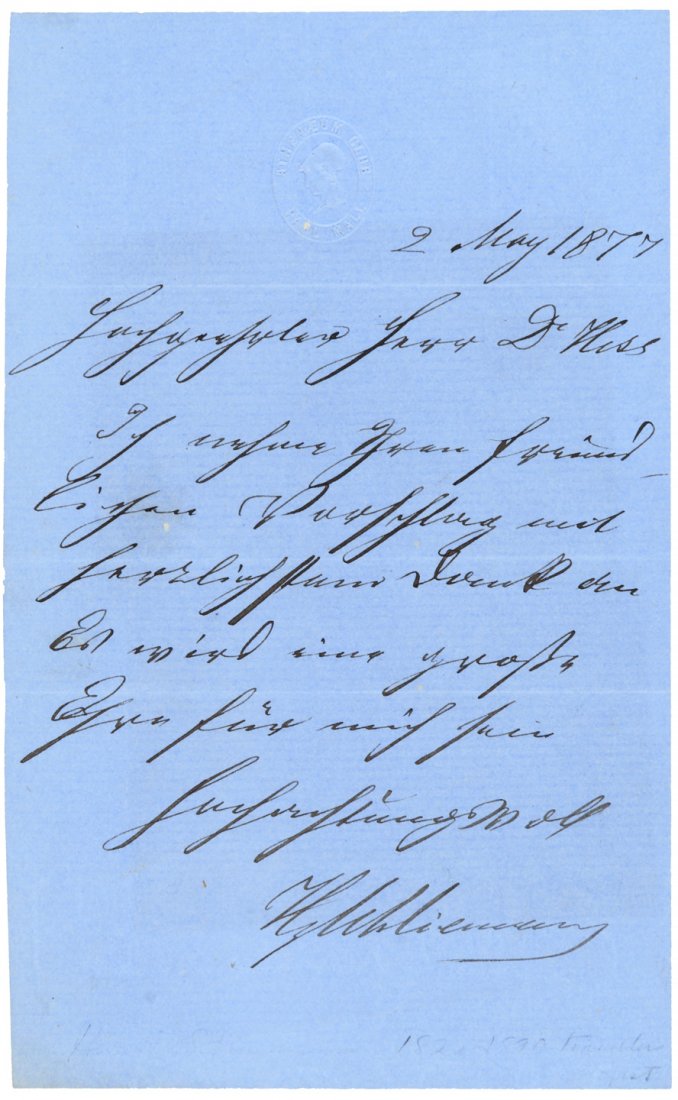 ATHENAEUM CLUB
PALL MALL
2 May 1877
Hochgeehrter Herr Dr Hess
Ich nehme Ihren freund-
lichen Vorschlag mit
herzlichstem Dank an
Es wird eine große
Ehre für mich sein
Hochachtungsvoll
HySchliemann
1890